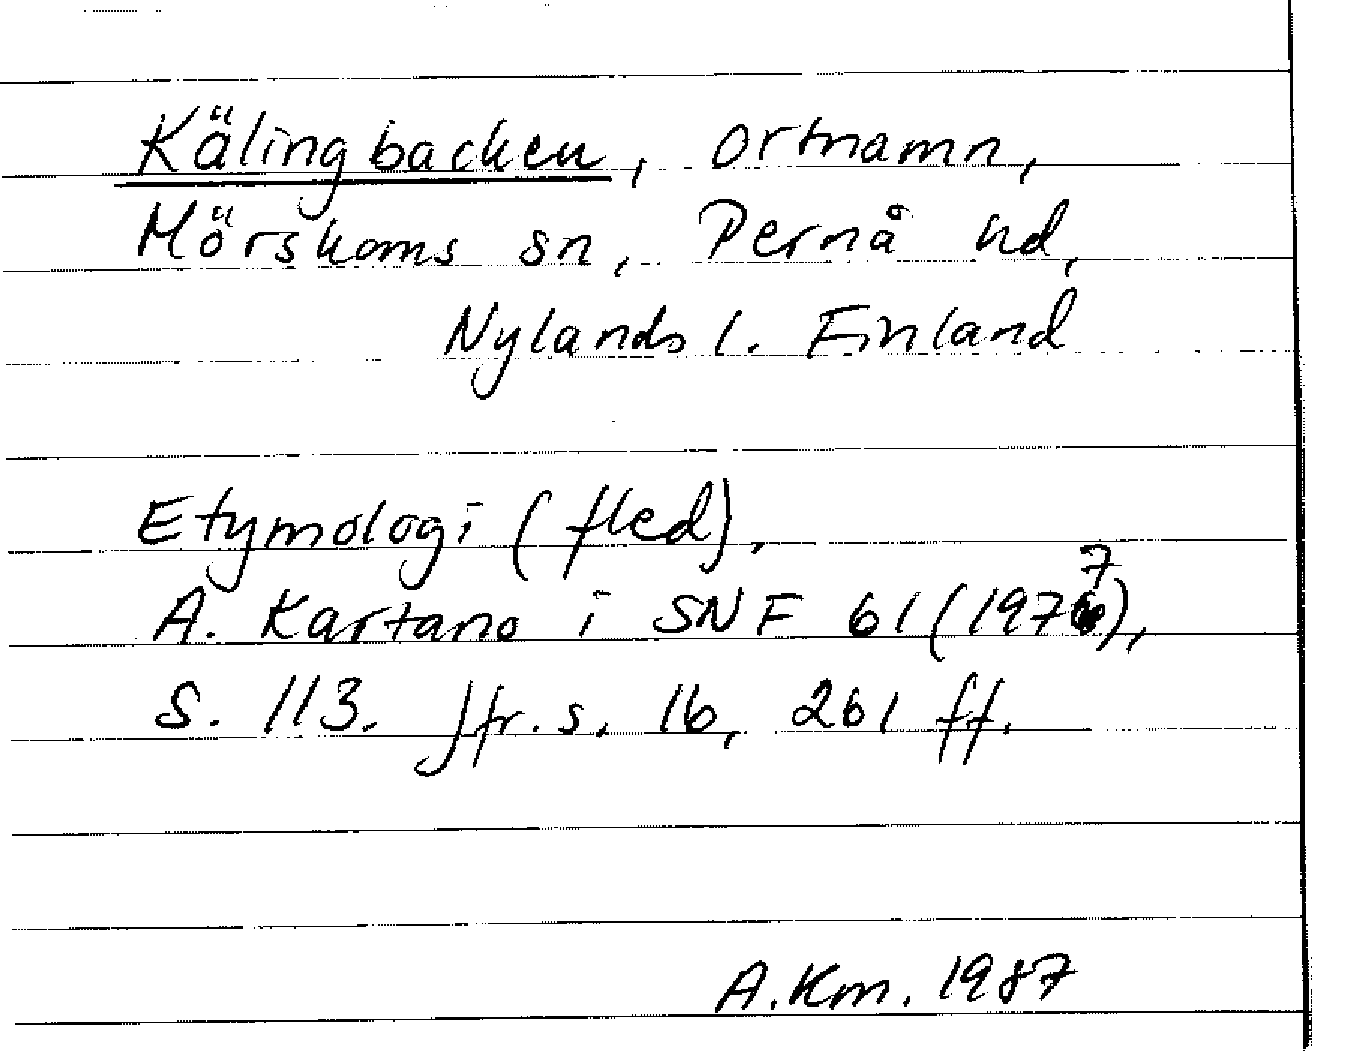 Kälingbacken, ortnamn,
Mörskoms sn, Pernå hd,
Nylands l. Finland
Etymologi (fled),
A. Kartano i SNF 61 (1977),
S. 113. Jfr. s. 16, 261 ff.
A.Km. 1987